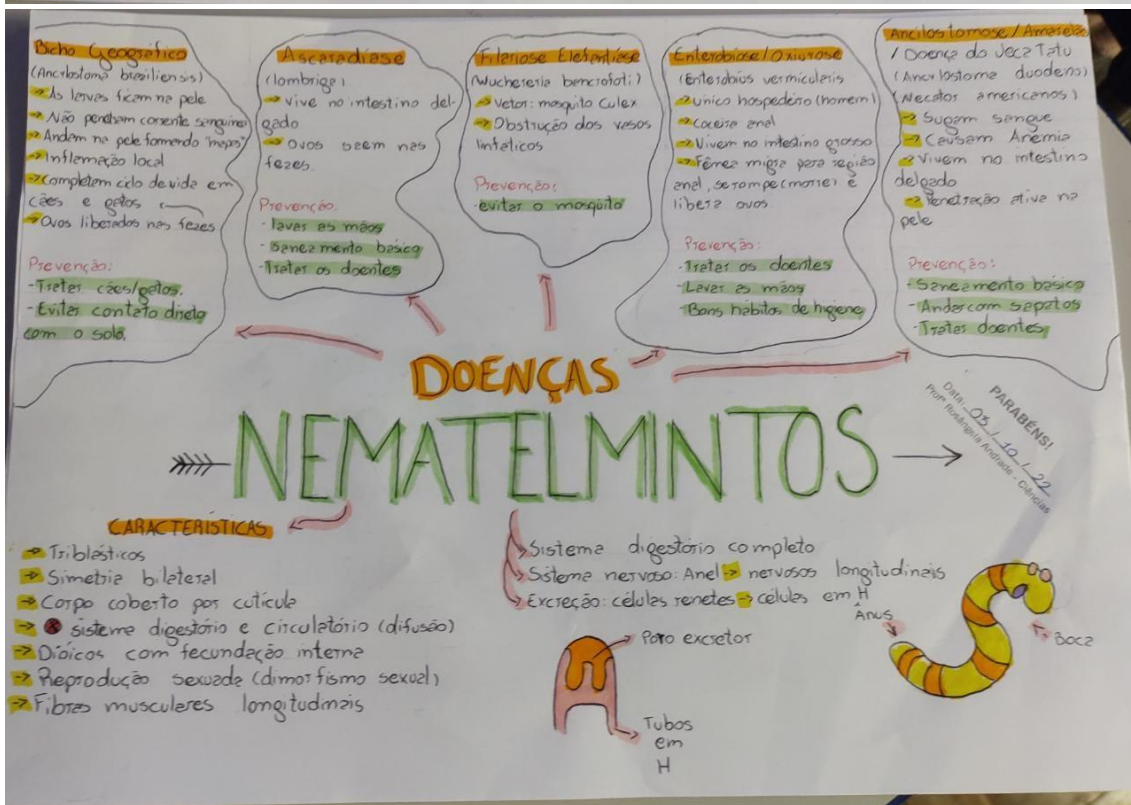 Bicho Geográfico
(Ancylostoma brasiliensis)
→ As larvas ficam na pele
→ Não penetram corrente sanguínea
→ Andam na pele formando "mapas"
→ Inflamação local
→ Completam ciclo de vida em
cães e gatos
→ Ovos liberados nas fezes
Prevenção:
- Tratar cães/gatos.
- Evitar contato direto
com o solo.
Ascaradíase
(lombriga)
→ Vive no intestino del-
gado
→ Ovos saem nas
fezes.
Prevenção:
- lavar as mãos
- Saneamento básico
- Tratar os doentes
Filariose Elefantíase
(Wuchereria bancrofoti)
→ Vetor: mosquito Culex
→ Obstrução dos vasos
linfáticos
Prevenção:
- evitar o mosquito
Enterobiose/Oxiurose
(Enterobius vermicularis
→ Único hospedeiro (homem)
→ Coceira anal
→ Vivem no intestino grosso
→ Fêmea migra para região
anal, se rompe (morre) e
libera ovos.
Prevenção:
- Tratar os doentes
- Lavar as mãos
- Bons hábitos de higiene
Ancilostomose/Amarelão
/ Doença do Jeca Tatu
(Ancylostoma duodens)
(Necator americanos)
→ Sugam sangue
→ Causam Anemia
→ Vivem no intestino
delgado
→ Penetração ativa na
pele
Prevenção:
- Saneamento básico
- Andar com sapatos
- Tratar doentes
DOENÇAS
NEMATELMINTOS
PARABÉNS!
Data: 03/10/22
Profª Rosângela Andrade - Ciências
CARACTERÍSTICAS
→ Triblásticos
→ Simetria bilateral
→ Corpo coberto por cutícula
→ sistema digestório e circulatório (difusão)
→ Dióicos com fecundação interna
→ Reprodução sexuada (dimorfismo sexual)
→ Fibras musculares longitudinais
Sistema digestório completo
Sistema nervoso: Anel → nervosos longitudinais
Excreção: células renetes → células em H
Poro excretor
Tubos
em
H
Ânus
Boca